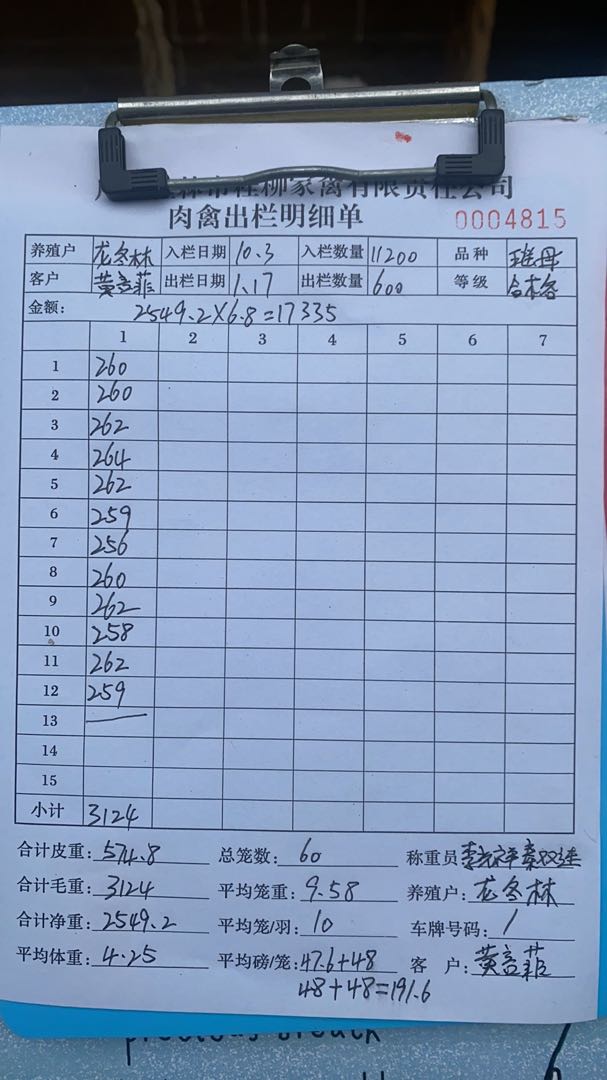 桂柳家禽有限责任公司
肉禽出栏明细单 0004815
养殖户 龙冬林 入栏日期 10.3 入栏数量 11200 品种
客户 黄言菲 出栏日期 1.17 出栏数量 600 等级 合格
金额: 2549.2×6.8=17335
1 2 3 4 5 6 7
1 260
2 260
3 262
4 264
5 262
6 259
7 256
8 260
9 262
10 258
11 262
12 259
13 —
14
15
小计 3124
合计皮重: 574.8 总笼数: 60 称重员
合计毛重: 3124 平均笼重: 9.58 养殖户: 龙冬林
合计净重: 2549.2 平均笼/羽: 10 车牌号码: /
平均体重: 4.25 平均磅/笼: 47.6+48 客 户: 黄言菲
48+48=191.6